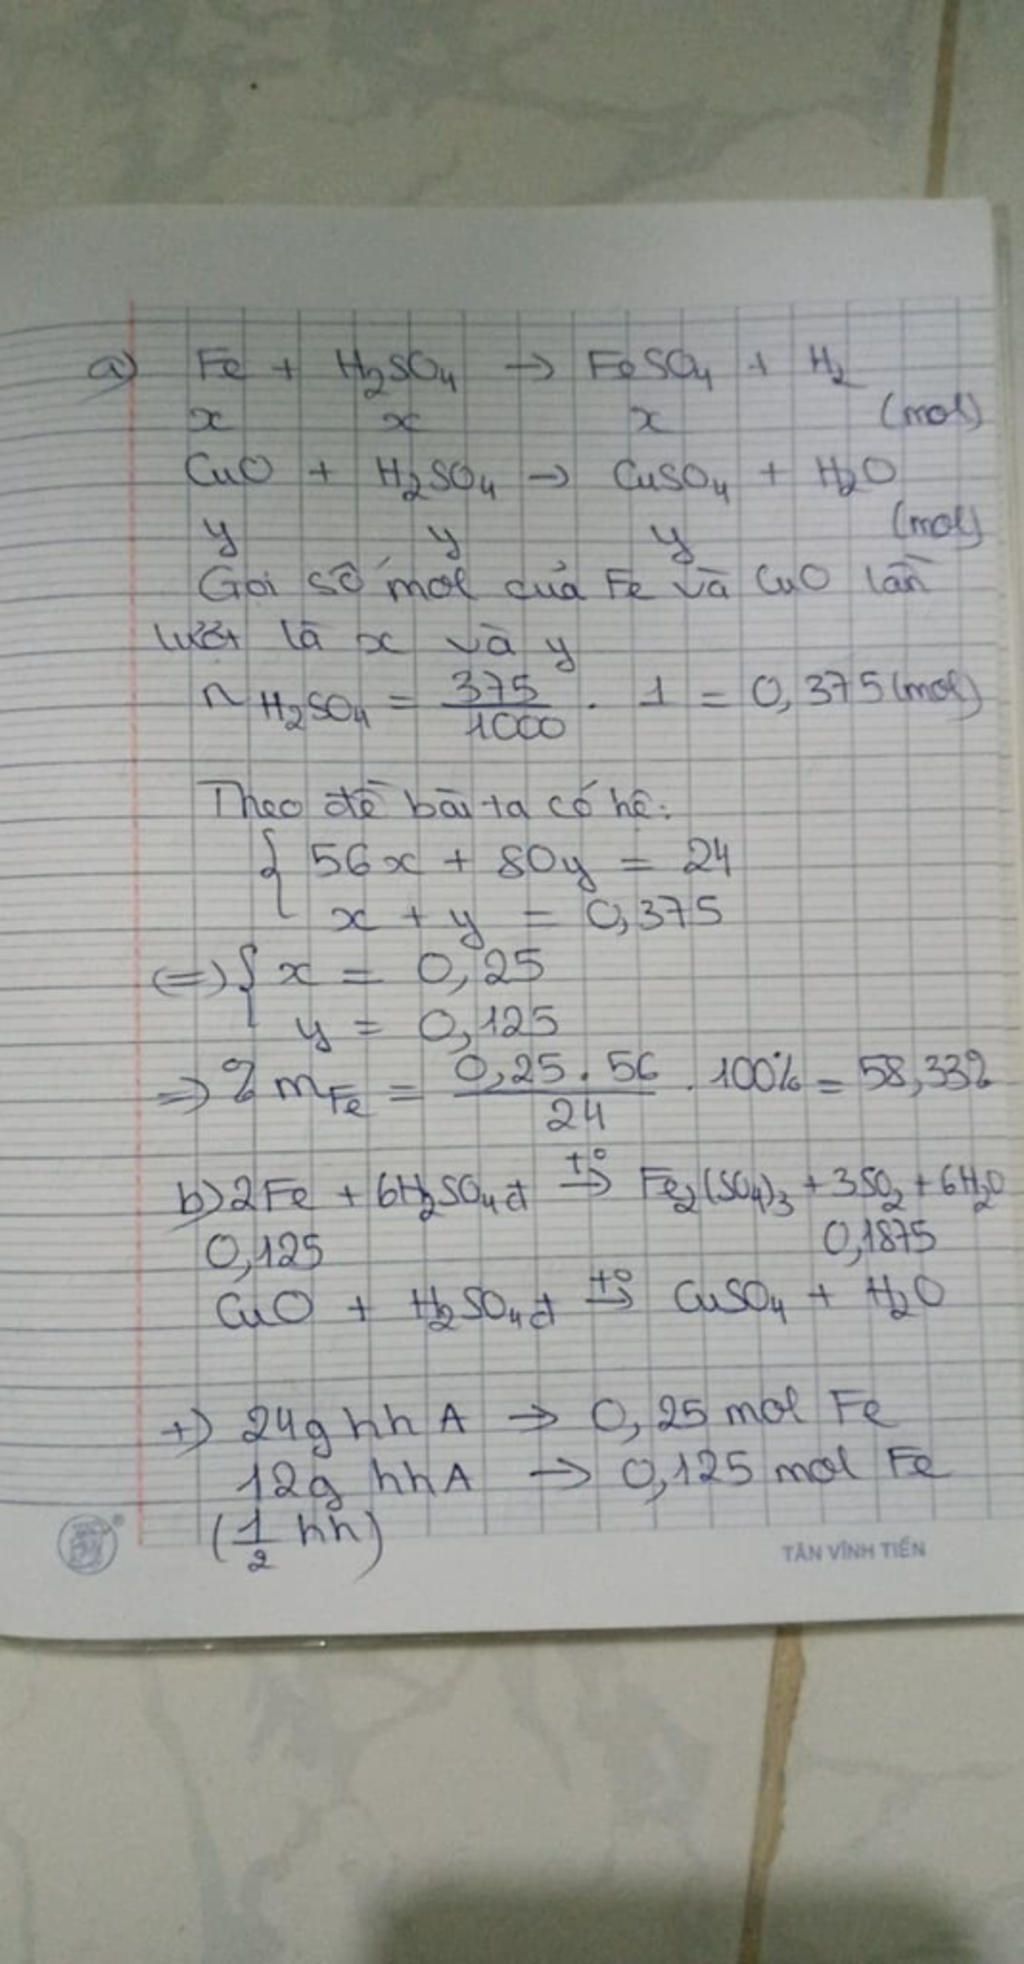 a) Fe + H₂SO₄ → FeSO₄ + H₂
x x x (mol)
CuO + H₂SO₄ → CuSO₄ + H₂O
y y y (mol)
Gọi số mol của Fe và CuO lần
lượt là x và y
n H₂SO₄ = 375/1000 . 1 = 0,375 (mol)
Theo đề bài ta có hệ:
{ 56x + 80y = 24
x + y = 0,375
(=) { x = 0,25
y = 0,125
=) % mFe = 0,25 . 56/24 . 100% = 58,33%
b) 2Fe + 6H₂SO₄đ t°→ Fe₂(SO₄)₃ + 3SO₂ + 6H₂O
0,125 0,1875
CuO + H₂SO₄đ t°→ CuSO₄ + H₂O
+) 24g hh A → 0,25 mol Fe
12g hh A → 0,125 mol Fe
(1/2 hh)
TÂN VĨNH TIẾN